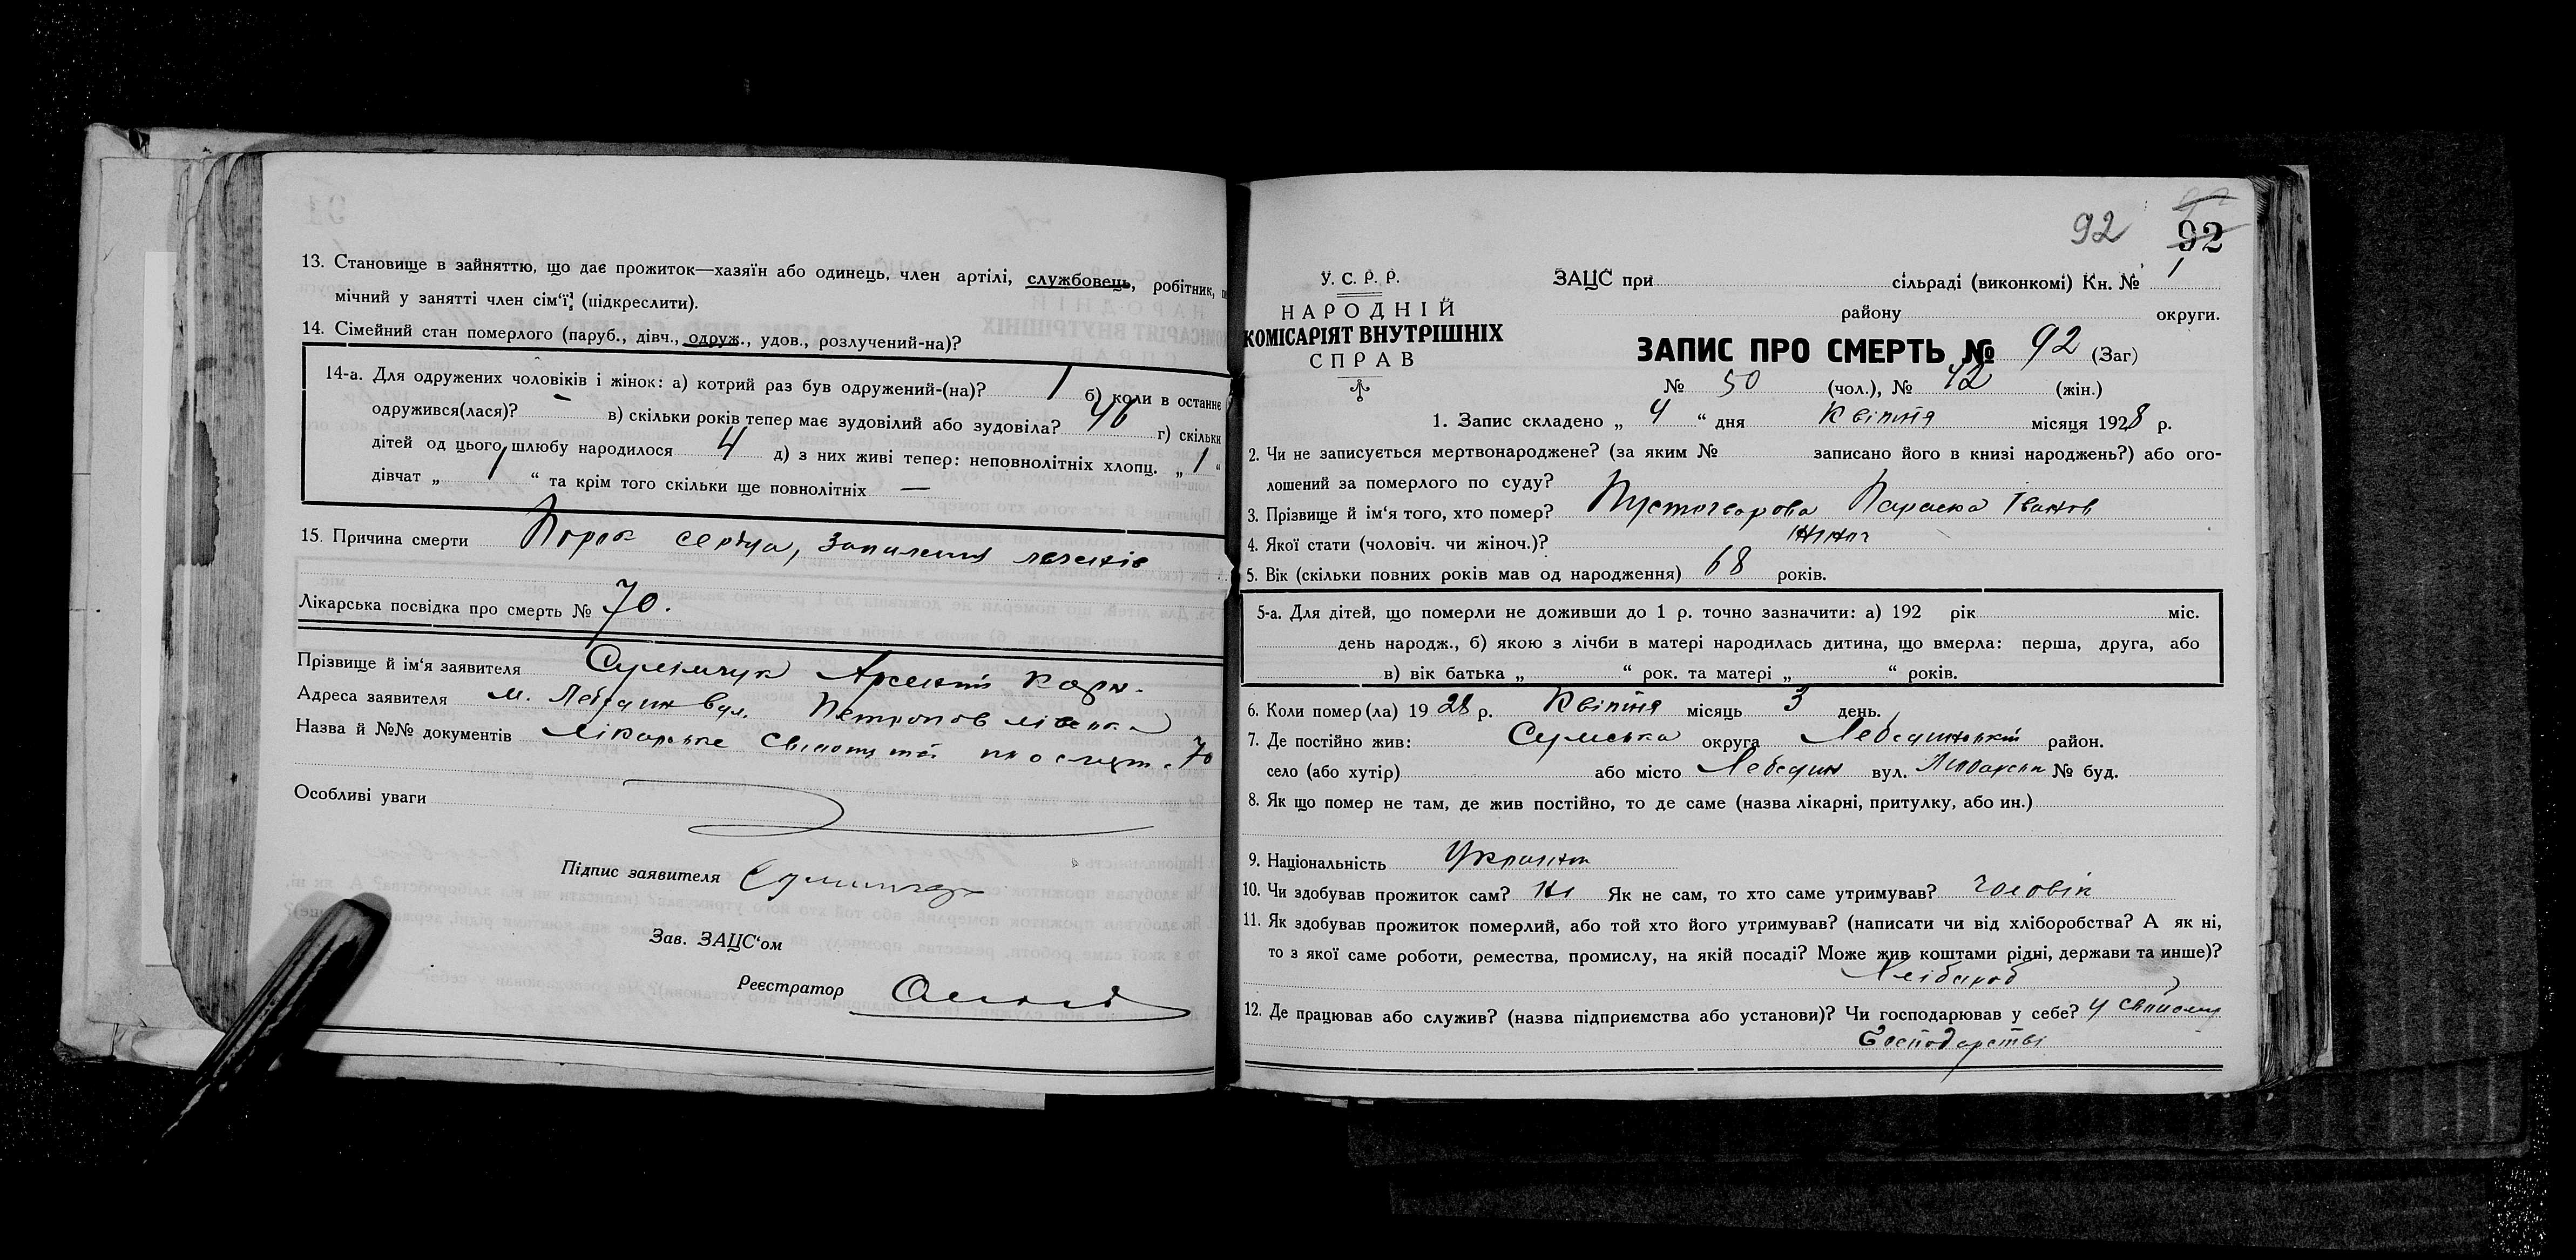 13. Становище в зайняттю, що дає прожиток—хазяїн або одинець, член артілі, службовець, робітник,
мічний у занятті член сім'ї, (підкреслити).
14. Сімейний стан померлого (паруб., дівч., одруж., удов., розлучений-на)?
14-а. Для одружених чоловіків і жінок: а) котрий раз був одружений-(на)? 1 б) коли в останнє
одружився(лася)? – в) скільки років тепер має зудовілий або зудовіла? 46 г) скільки
дітей од цього шлюбу народилося 4 д) з них живі тепер: неповнолітніх хлопц. „ 1 “
дівчат „ 1 “ та крім того скільки ще повнолітніх —
15. Причина смерти Порок серця, Запалення легенів
Лікарська посвідка про смерть № 70.
Прізвище й ім'я заявителя Арсентій
Адреса заявителя м. Лебедин вул.
Назва й №№ документів Лікарське про смерт. 70
Особливі уваги
Підпис заявителя
Зав. ЗАЦС'ом
Реєстратор
92 92
У. С. Р. Р.
НАРОДНІЙ
КОМІСАРІЯТ ВНУТРІШНІХ
СПРАВ
ЗАЦС при сільраді (виконкомі) Кн. № 1
району округи.
ЗАПИС ПРО СМЕРТЬ № 92 (Заг)
№ 50 (чол.), № 42 (жін.)
1. Запис складено „ 4 “ дня Квітня місяця 1928 р.
2. Чи не записується мертвонароджене? (за яким № записано його в книзі народжень?) або ого-
лошений за померлого по суду?
3. Прізвище й ім'я того, хто помер? Параска Іванов
4. Якої стати (чоловіч. чи жіноч.)? жіноч
5. Вік (скільки повних років мав од народження) 68 років.
5-а. Для дітей, що померли не доживши до 1 р. точно зазначити: а) 192 рік міс.
день народж., б) якою з лічби в матері народилась дитина, що вмерла: перша, друга, або
в) вік батька „ “ рок. та матері „ “ років.
6. Коли помер(ла) 19 28 р. Квітня місяць 3 день.
7. Де постійно жив: Сумська округа Лебединський район.
село (або хутір) або місто Лебедин вул. № буд.
8. Як що помер не там, де жив постійно, то де саме (назва лікарні, притулку, або ин.)
9. Національність
10. Чи здобував прожиток сам? ні Як не сам, то хто саме утримував? чоловік
11. Як здобував прожиток померлий, або той хто його утримував? (написати чи від хліборобства? А як ні,
то з якої саме роботи, ремества, промислу, на якій посаді? Може жив коштами рідні, держави та инше)?
Хлібороб
12. Де працював або служив? (назва підприємства або установи)? Чи господарював у себе? у свойому
Господарстві